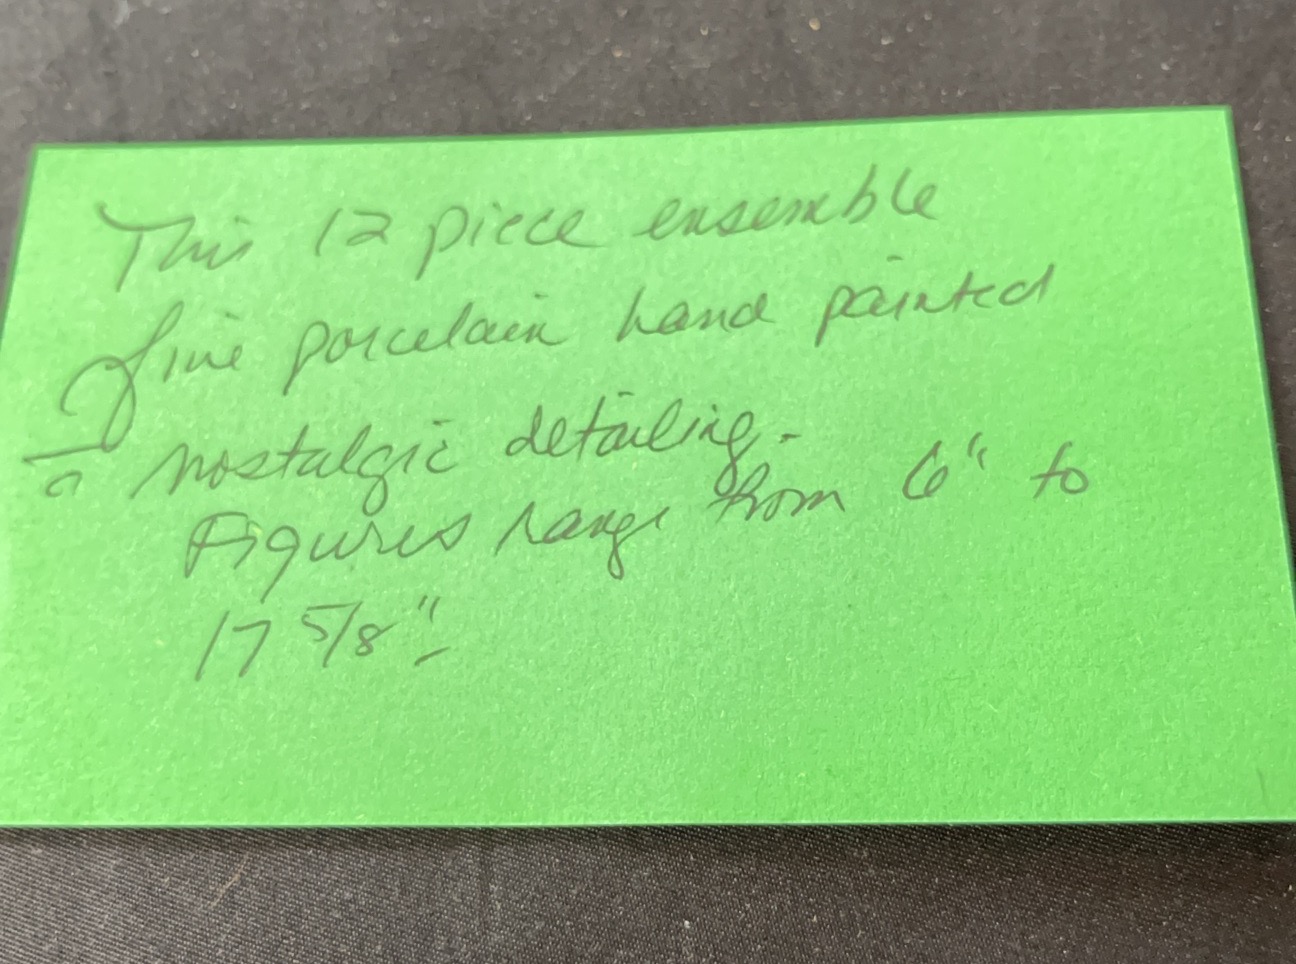 This 12 piece ensemble
fine porcelain hand painted
nostalgic detailing.
Figures range from 6" to
17 5/8"